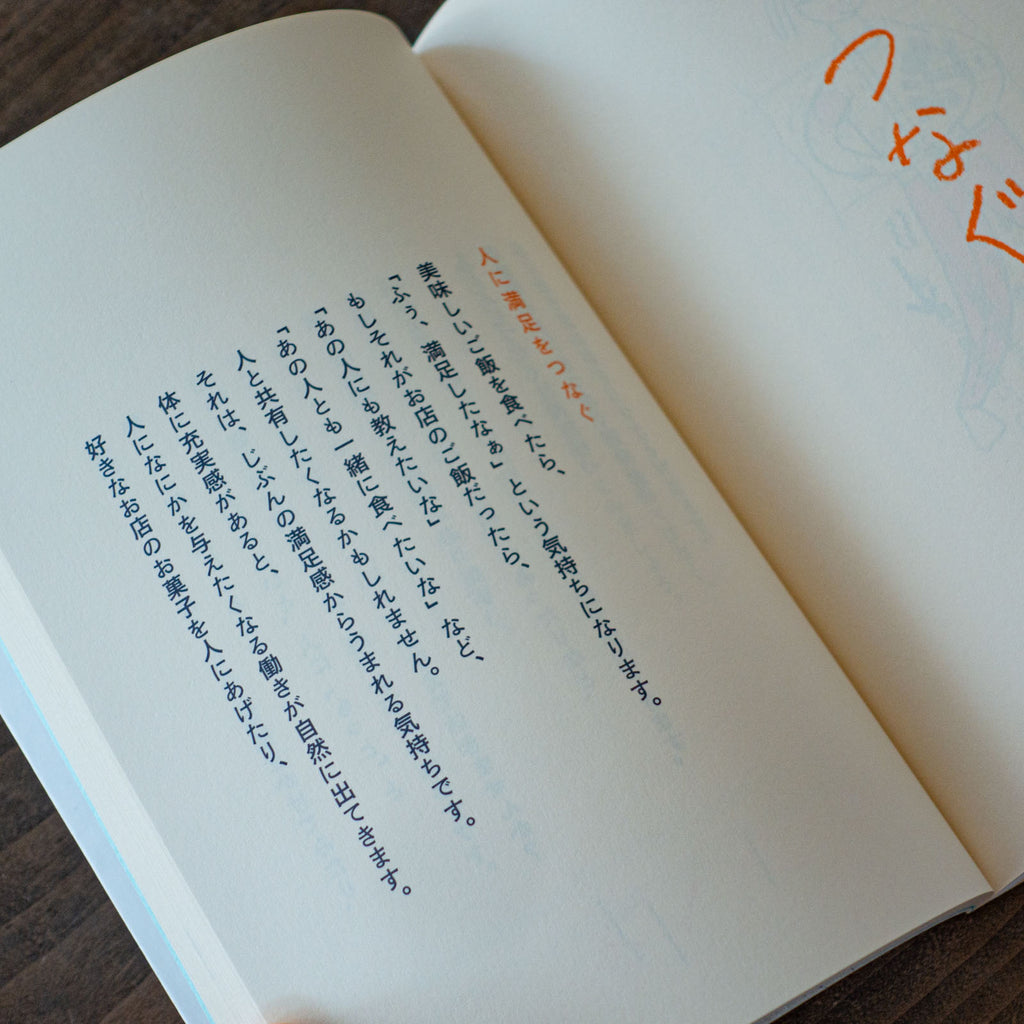 つなぐ
人に満足をつなぐ
美味しいご飯を食べたら、
「ふぅ、満足したなぁ」という気持ちになります。
もしそれがお店のご飯だったら、
「あの人にも教えたいな」
「あの人とも一緒に食べたいな」など、
人と共有したくなるかもしれません。
それは、じぶんの満足感からうまれる気持ちです。
体に充実感があると、
人になにかを与えたくなる働きが自然に出てきます。
好きなお店のお菓子を人にあげたり、